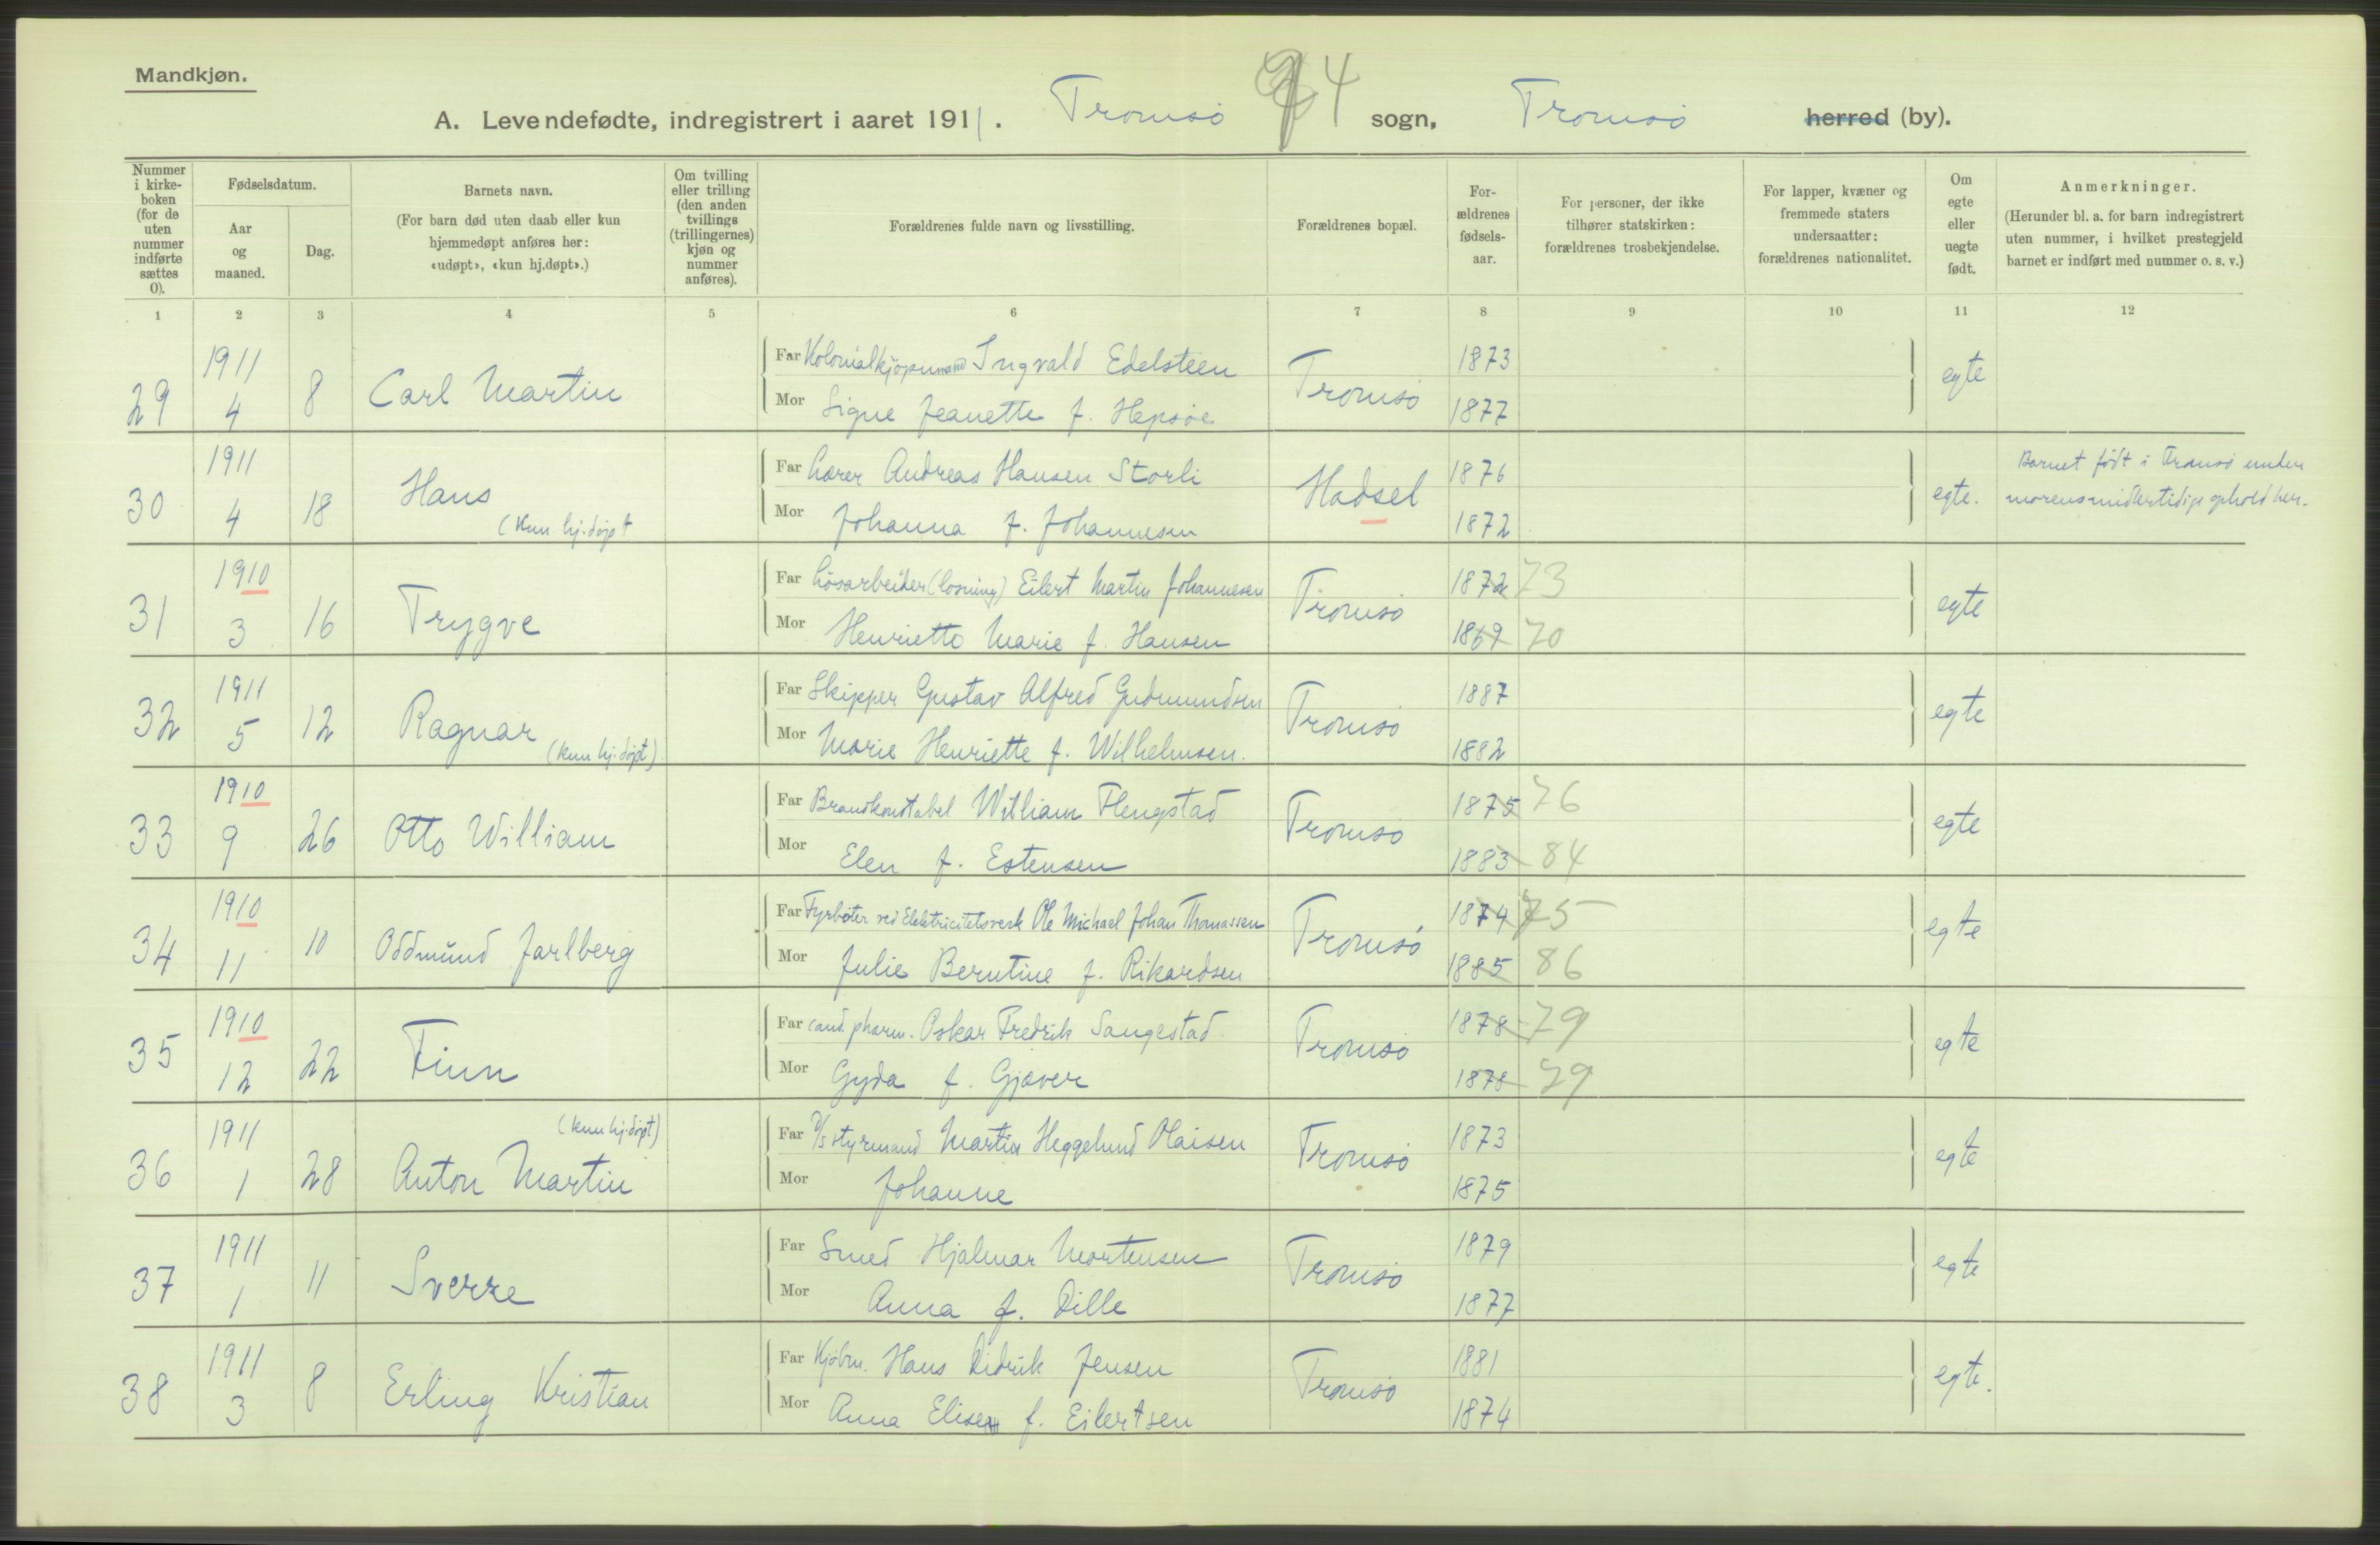 Mandkjøn.
A. Levendefødte, indregistrert i aaret 1911. Tromsø 4 sogn, Tromsø herred (by).
Nummer i kirke-boken (for de uten nummer indførte sættes 0).
Fødselsdatum.
Aar og maaned.
Dag.
Barnets navn.
(For barn død uten daab eller kun hjemmedøpt anføres her: «udøpt», «kun hj.døpt».)
Om tvilling eller trilling (den anden tvillings (trillingernes) kjøn og nummer anføres).
Forældrenes fulde navn og livsstilling.
Forældrenes bopæl.
For-ældrenes fødsels-aar.
For personer, der ikke tilhører statskirken: forældrenes trosbekjendelse.
For lapper, kvæner og fremmede staters undersaatter: forældrenes nationalitet.
Om egte eller uegte født.
Anmerkninger.
(Herunder bl. a. for barn indregistrert uten nummer, i hvilket prestegjeld barnet er indført med nummer o. s. v.)
1 2 3 4 5 6 7 8 9 10 11 12
29 1911 4 8 Carl Martin
Far Kolonialkjøpmand Ingvald Edelsteen Tromsø 1873 egte
Mor Signe Jeanette f. Hepsøe 1877
30 1911 4 18 Hans (kun hj.døpt
Far Lærer Andreas Hansen Storli Hadsel 1876 egte.
Mor Johanna f. Johannesen 1872
Barnet født i Tromsø under
morens midlertidige ophold her.
31 1910 3 16 Trygve
Far Løsarbeider (losning) Eilert Martin Johannesen Tromsø 1872 73 egte
Mor Henriette Marie f. Hansen 1869 70
32 1911 5 12 Ragnar (kun hj.døpt)
Far Skipper Gustav Alfred Gudmundsen Tromsø 1887 egte
Mor Marie Henriette f. Wilhelmsen. 1882
33 1910 9 26 Otto William
Far Brandkonstabel William Flengstad Tromsø 1875 76 egte
Mor Elen f. Estensen 1883 84
34 1910 11 10 Oddmund Jarlberg
Far Fyrbøter ved Elektricitetsverk Ole Michael Johan Thomassen Tromsø 1874 75 egte
Mor Julie Berntine f. Rikardsen 1885 86
35 1910 12 22 Finn
Far cand. pharm. Oskar Fredrik Sangestad Tromsø 1878 79 egte
Mor Gyda f. Gjæver 1878 79
36 1911 1 28 (kun hj.døpt) Anton Martin
Far styrmand Martin Heggelund Olaisen Tromsø 1873 egte
Mor Johanne 1875
37 1911 1 11 Sverre
Far Smed Hjalmar Mortensen Tromsø 1879 egte
Mor Anna f. Dille 1877
38 1911 3 8 Erling Kristian
Far Kjøbm. Hans Didrik Jensen Tromsø 1881 egte.
Mor Anna Elise f. Eilertsen 1874